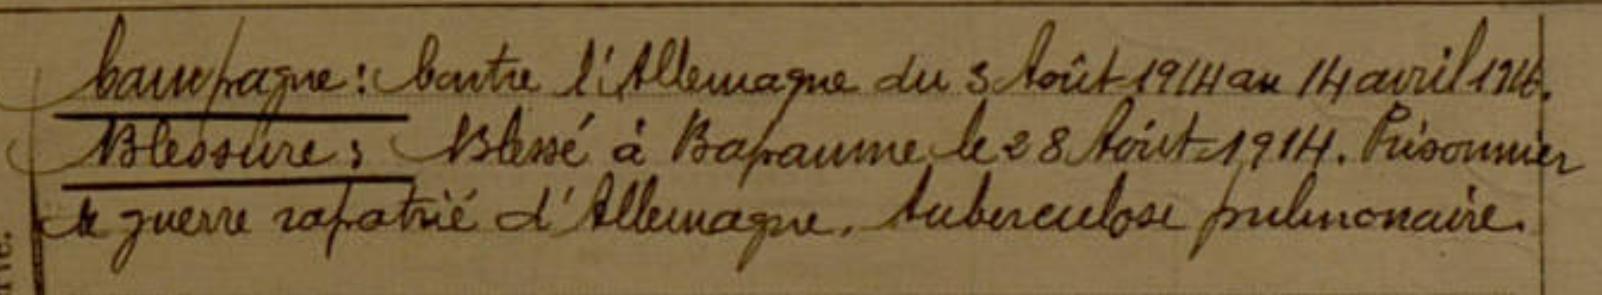 Campagne : Contre l'Allemagne du 3 Août 1914 au 14 avril 1916.
Blessure : Blessé à Bapaume le 28 Août 1914. Prisonnier
de guerre rapatrié d'Allemagne. tuberculose pulmonaire.